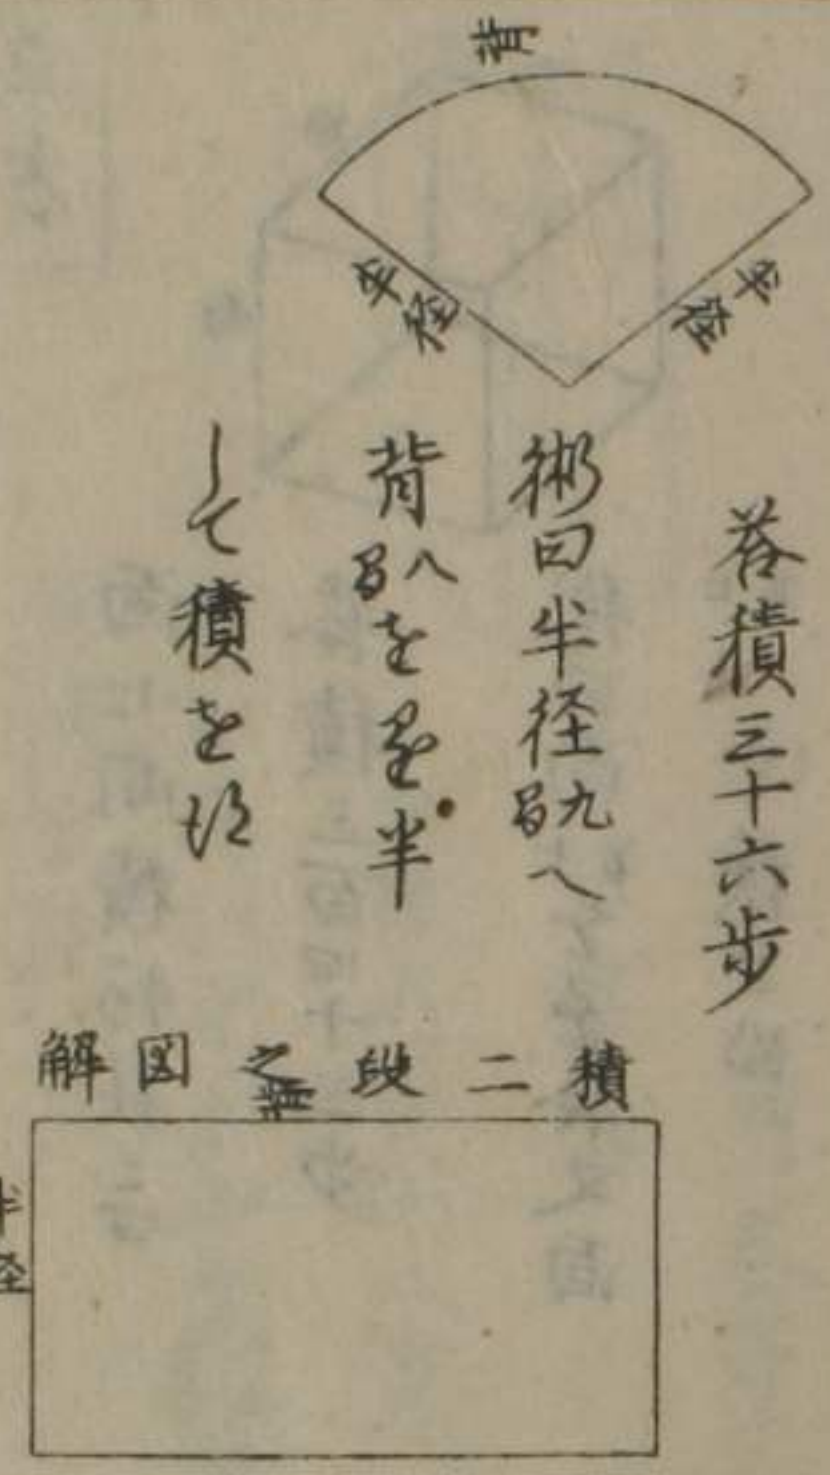 背
半径
半径
答積三十六歩
術曰半径九ヘ
背八を乗半
して積を得
積二段之図解
背
半径